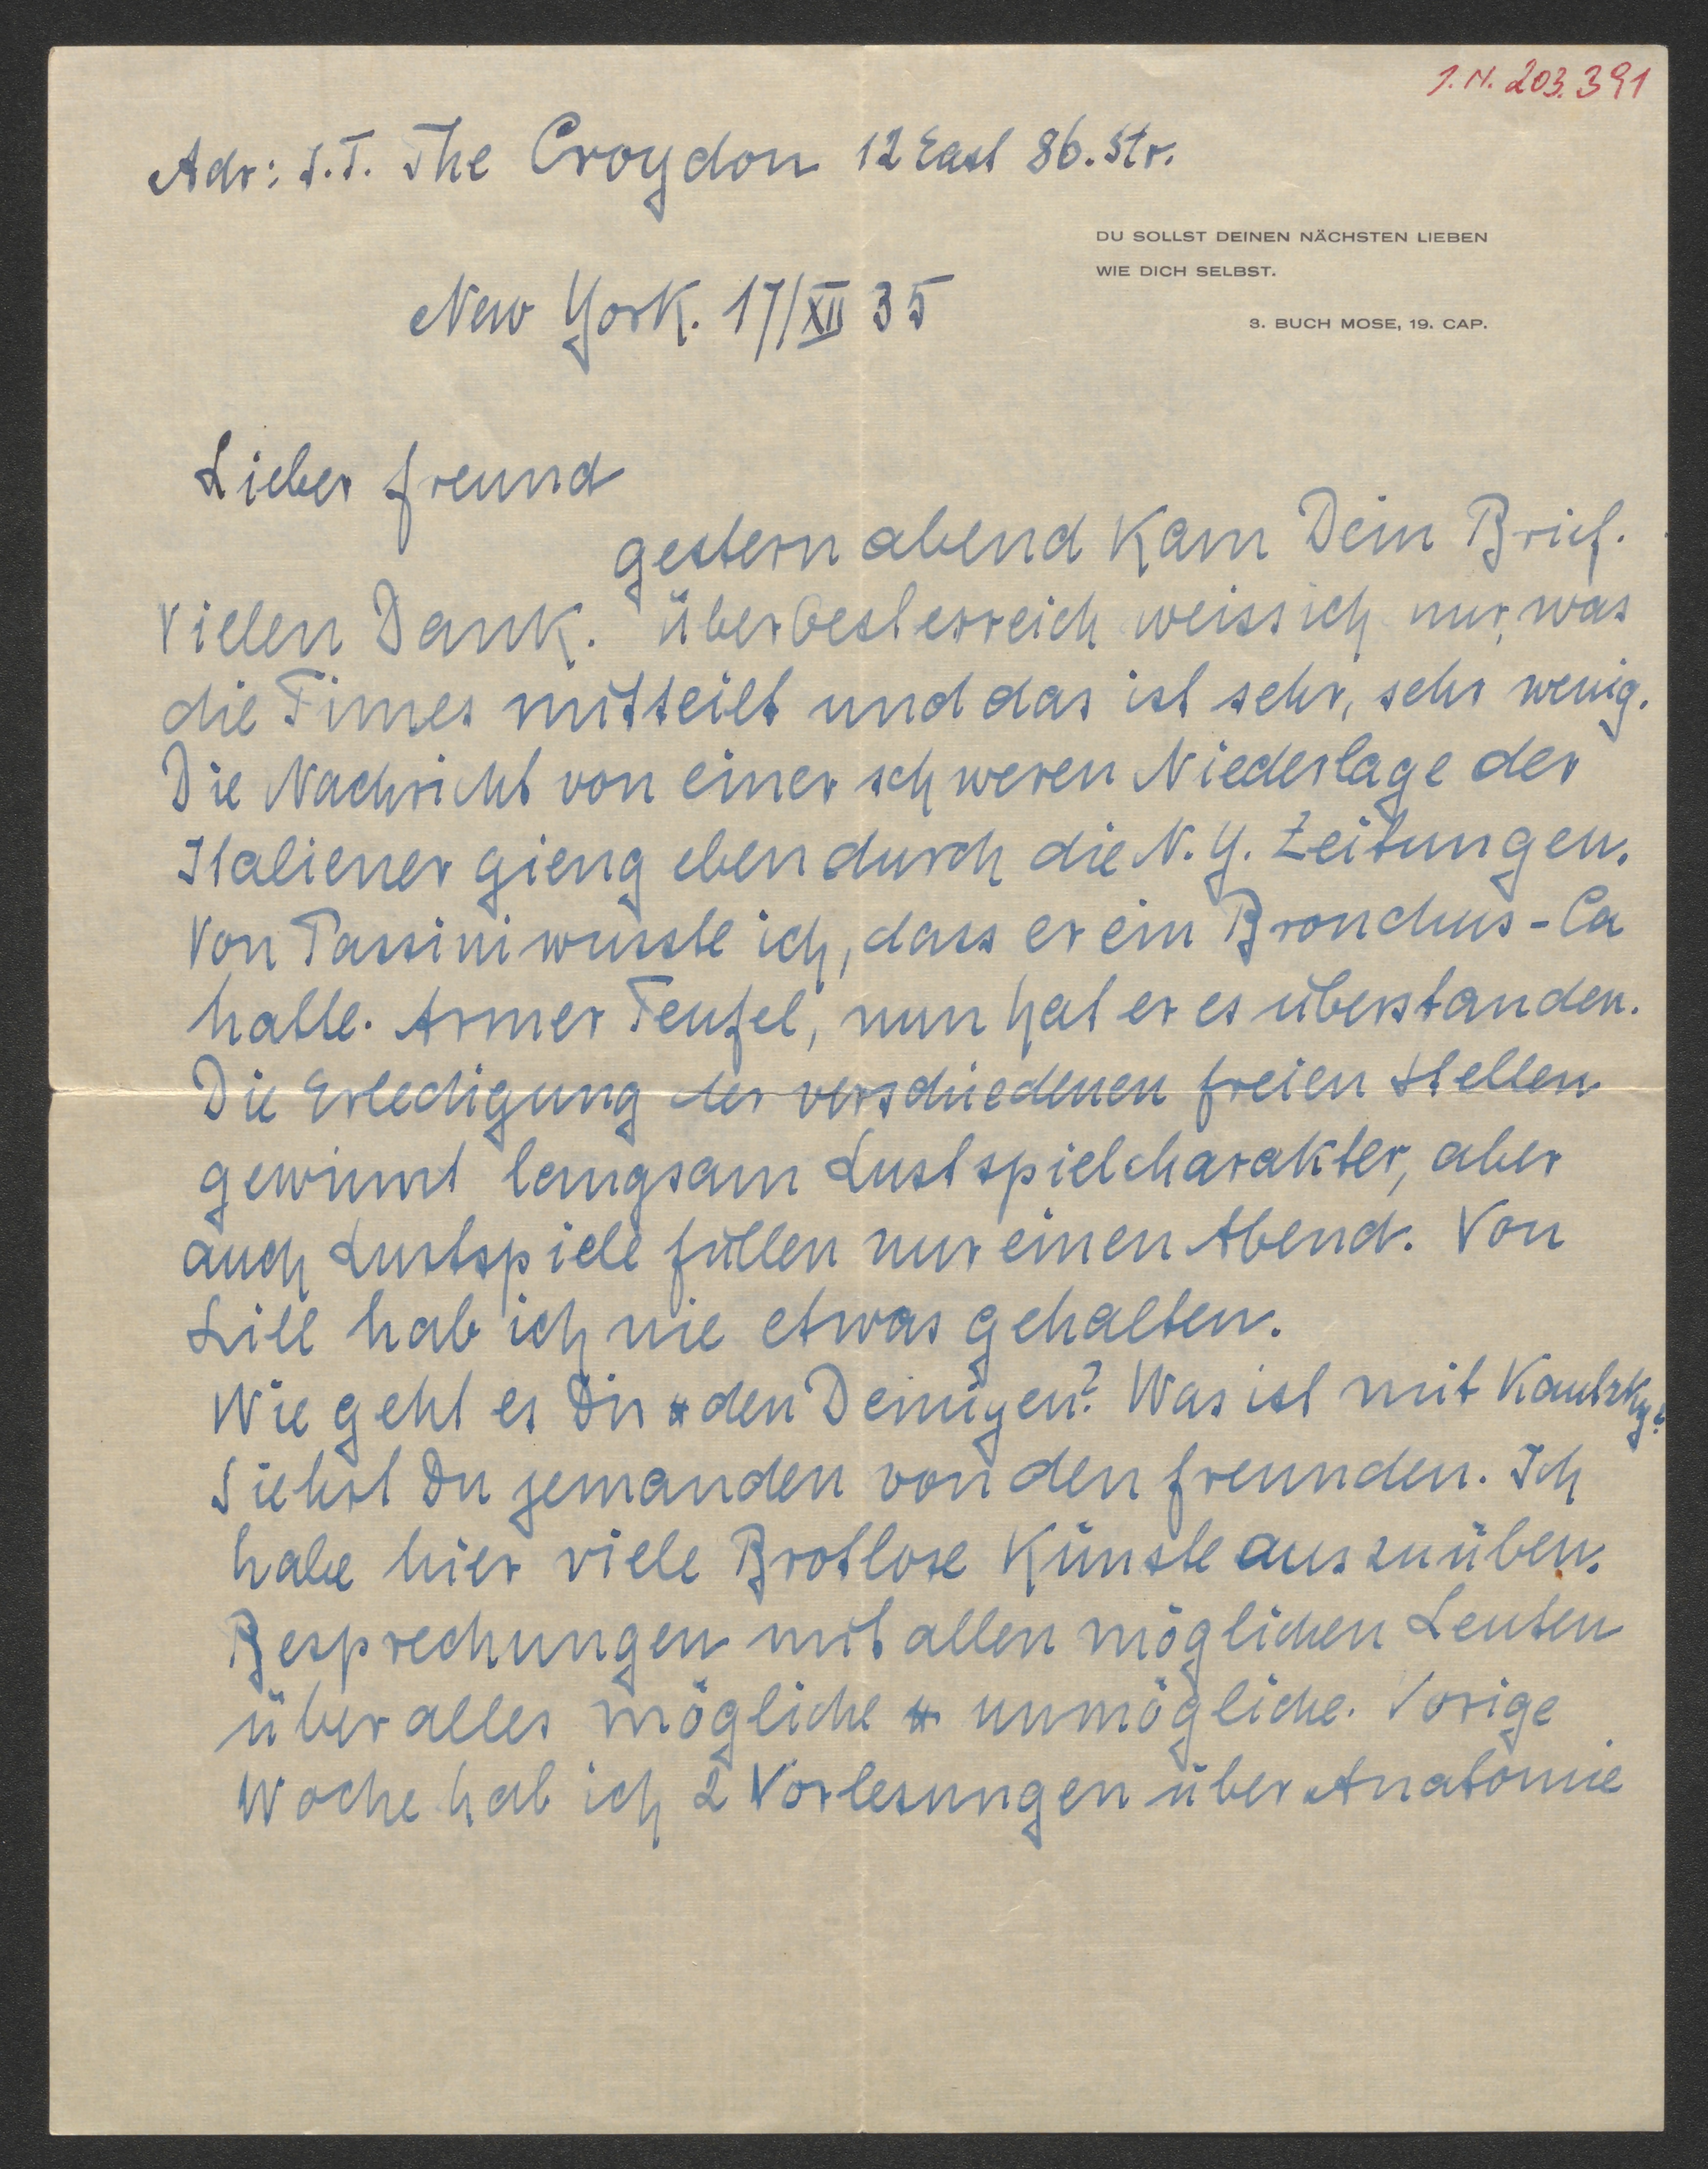 I.N. 203.391
Adr: J.T. The Croydon 12 East 86. Str.
DU SOLLST DEINEN NÄCHSTEN LIEBEN
WIE DICH SELBST.
3. BUCH MOSE, 19. CAP.
New York. 17/XII 35
Lieber Freund
gestern abend kam Dein Brief.
Vielen Dank. Über Oesterreich weiss ich nur, was
die Times mitteilt und das ist sehr, sehr wenig.
Die Nachricht von einer schweren Niederlage der
Italiener gieng eben durch die N.Y. Zeitungen.
Von Tassini wusste ich, dass er ein Bronchus-Ca
hatte. Armer Teufel, nun hat er es überstanden.
Die Erledigung der verschiedenen freien Stellen
gewinnt langsam Lustspielcharakter, aber
auch Lustspiele füllen nur einen Abend. Von
Lill hab ich nie etwas gehalten.
Wie geht es Dir u den Deinigen? Was ist mit Kautzky?
Siehst Du jemanden von den Freunden. Ich
habe hier viele Brotlose Künste auszuüben.
Besprechungen mit allen möglichen Leuten
über alles mögliche u unmögliche. Vorige
Woche hab ich 2 Vorlesungen über Anatomie